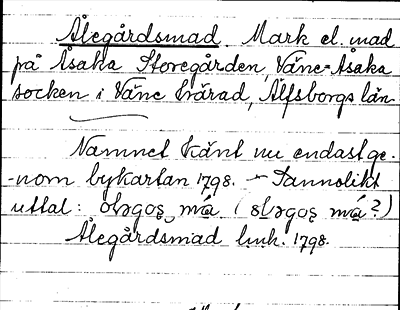 Ålegårdsmad. Mark el. mad
på Åsaka Storegården, Väne-Åsaka
socken i Väne härad, Älfsborgs län.
Namnet känt nu endast ge-
-nom bykartan 1798. — Sannolikt
uttal: må ( må?)
Ålegårdsmad lmh. 1798.